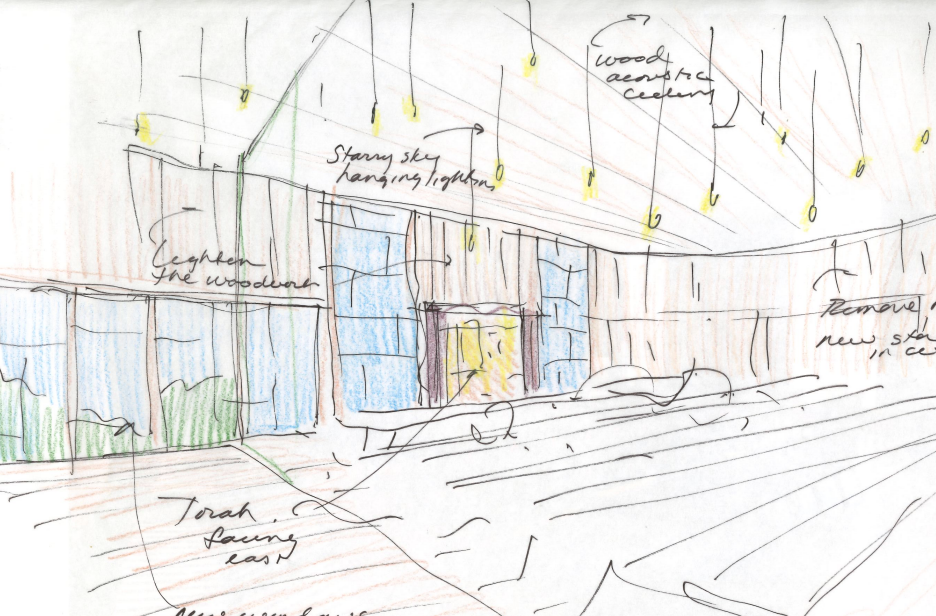 wood
acoustic
ceiling
Starry sky
hanging lighting
Lighten
the woodwork
Remove
new
in
Torah
facing
east